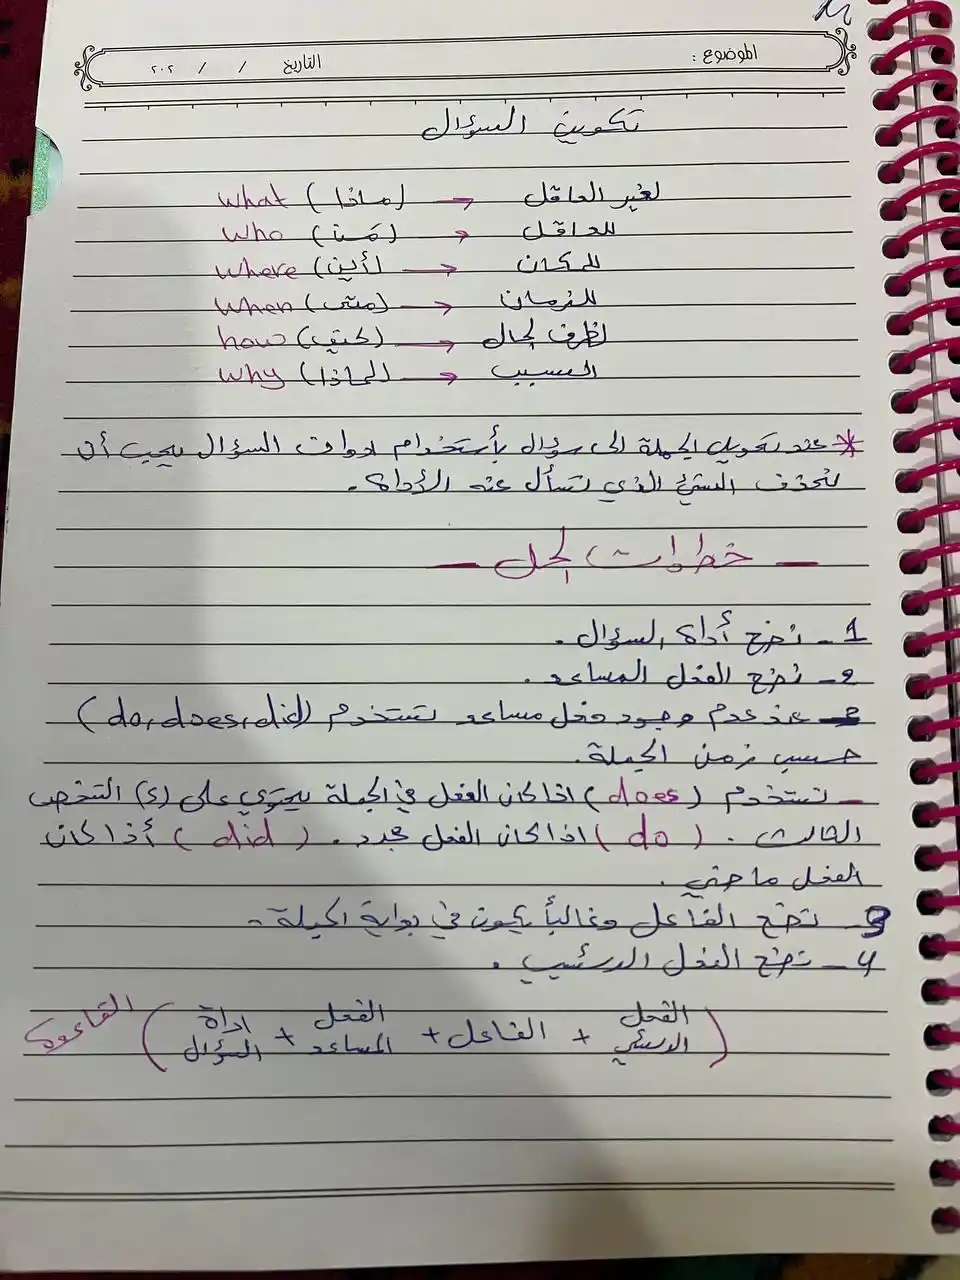 الموضوع :
التاريخ / / ٢٠٢
تكوين السؤال
what (ماذا) → لغير العاقل
who (مَن) → للعاقل
where (أين) → للمكان
when (متى) → للزمان
how (كيف) → لظرف الحال
why (لماذا) → السبب
* عند تحويل الجملة الى سؤال بأستخدام ادوات السؤال يجب أن
نحذف الشيء الذي تسأل عنه الأداة.
— خطوات الحل —
1- نضع أداة السؤال.
2- نضع الفعل المساعد.
- عند عدم وجود فعل مساعد نستخدم (do, does, did)
حسب زمن الجملة.
- نستخدم (does) اذا كان الفعل في الجملة يحتوي على (s) الشخص
الثالث. (do) اذا كان الفعل مجرد. (did) أذا كان
الفعل ماضي.
3- نضع الفاعل وغالباً يكون في بداية الجملة.
4- نضع الفعل الرئيسي.
القاعدة (اداة السؤال + الفعل المساعد + الفاعل + الفعل الرئيسي)